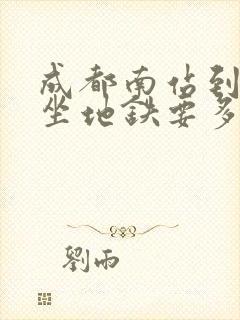 成都南站到
坐地鉄要多
劉雨